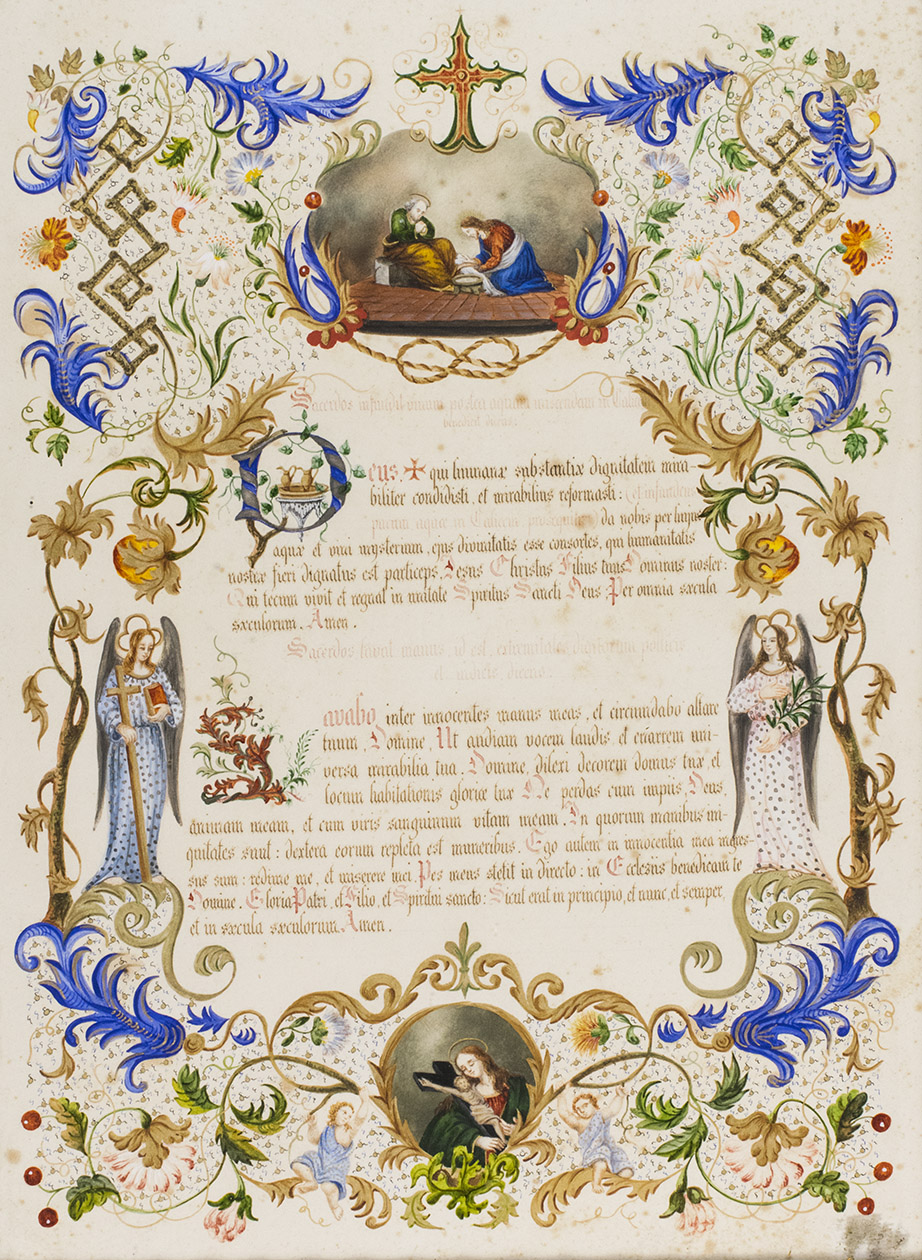 Sacerdos infundit vinum postea aquam miscendam in
benedicit dicens:
Deus, ✠ qui humanæ substantiæ dignitatem mira-
biliter condidisti, et mirabilius reformasti: (et infundens
parum aquæ in Calicem prosequitur) da nobis per hujus
aquæ et vini mysterium, ejus divinitatis esse consortes, qui humanitatis
nostræ fieri dignatus est particeps, Jesus Christus Filius tuus Dominus noster:
Qui tecum vivit et regnat in unitate Spiritus Sancti Deus: Per omnia sæcula
sæculorum. Amen.
Sacerdos lavat manus id est extremitates digitorum pollicis
et indicis dicens:
Lavabo inter innocentes manus meas, et circumdabo altare
tuum, Domine, Ut audiam vocem laudis, et enarrem uni-
versa mirabilia tua. Domine, dilexi decorem domus tuæ et
locum habitationis gloriæ tuæ. Ne perdas cum impiis, Deus,
animam meam, et cum viris sanguinum vitam meam. In quorum manibus ini-
quitates sunt: dextera eorum repleta est muneribus. Ego autem in innocentia mea ingres-
sus sum: redime me, et miserere mei. Pes meus stetit in directo: in Eclesiis benedicam te
Domine. Gloria Patri, et Filio, et Spiritui sancto: Sicut erat in principio, et nunc, et semper,
et in sæcula sæculorum. Amen.